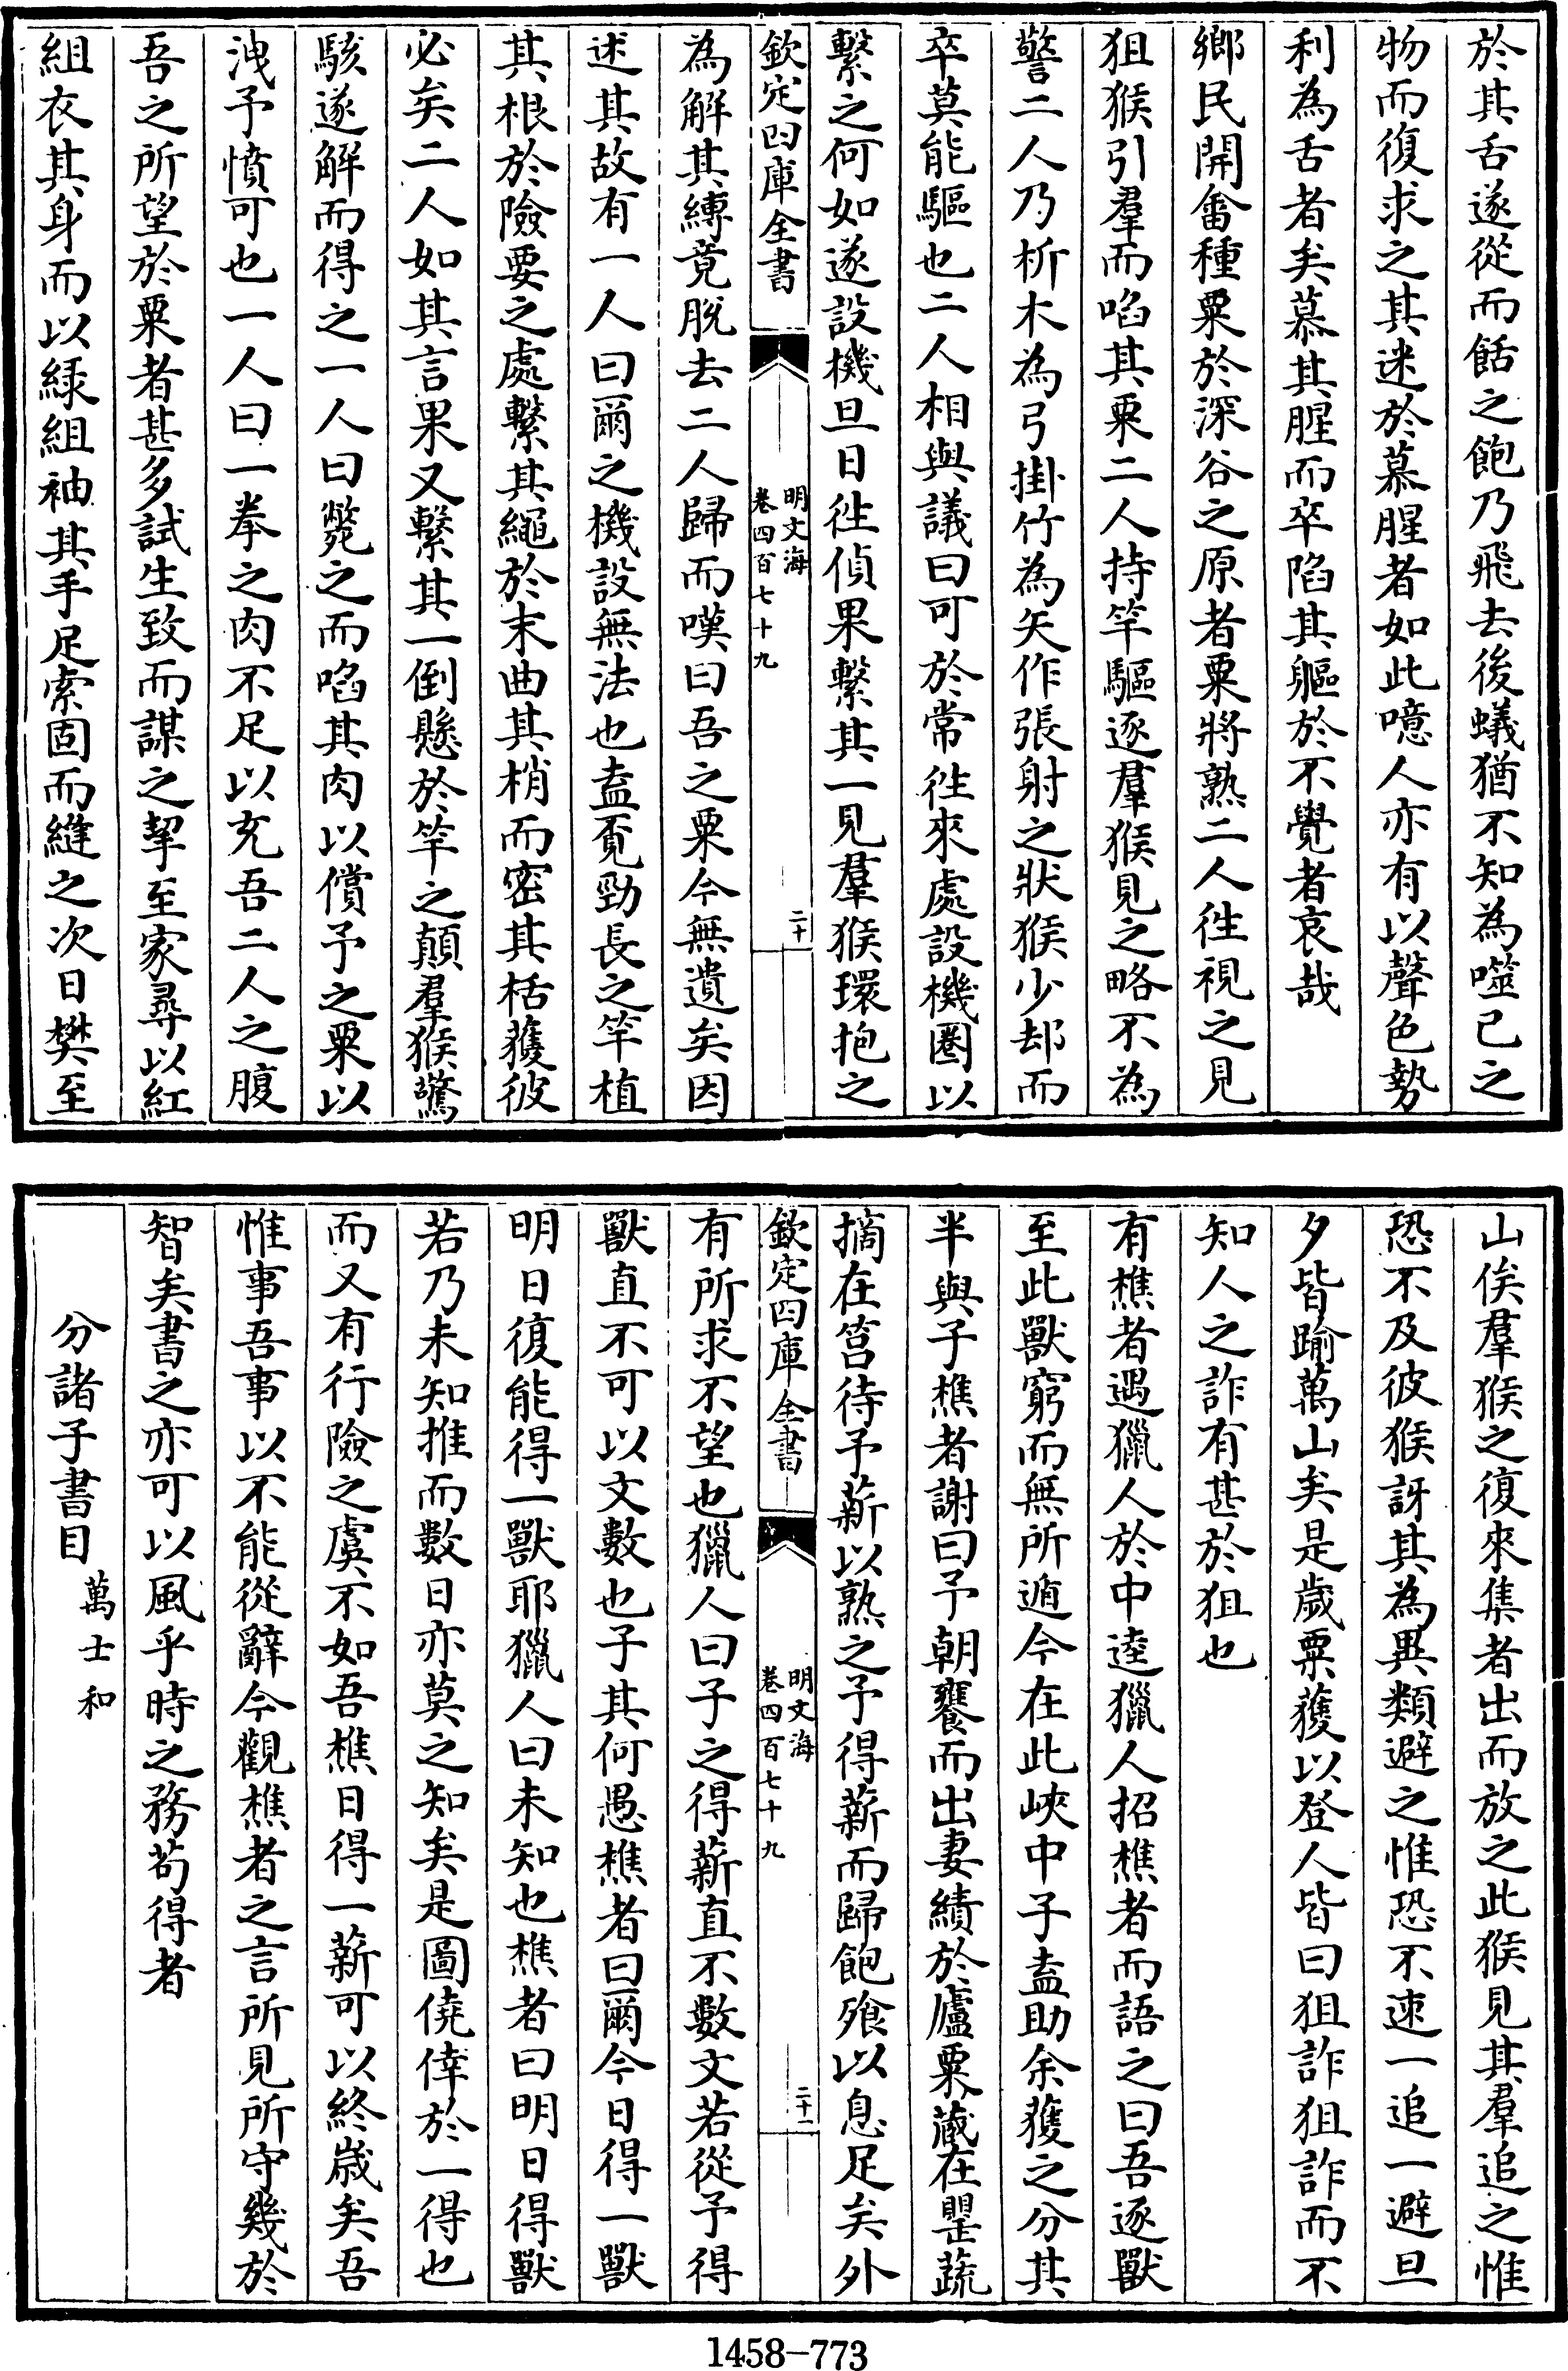 於其舌遂從而餂之飽乃飛去後蟻猶不知為噬己之
物而復求之其迷於慕腥者如此噫人亦有以聲色勢
利為舌者矣慕其腥而卒陷其軀於不覺者哀哉
鄉民開畬種粟於深谷之原者粟將熟二人徃視之見
狙猴引羣而啗其粟二人持竿驅逐羣猴見之略不為
警二人乃析木為弓掛竹為矢作張射之狀猴少却而
卒莫能驅也二人相與議曰可於常徃來處設機圈以
繫之何如遂設機旦日徃偵果繫其一見羣猴環抱之
欽定四庫全書
明文海
卷四百七十九
二十
為解其縛竟脫去二人歸而嘆曰吾之粟今無遺矣因
述其故有一人曰爾之機設無法也盍覓勁長之竿植
其根於險要之處繫其繩於末曲其梢而密其栝獲彼
必矣二人如其言果又繫其一倒懸於竿之顛羣猴驚
駭遂解而得之一人曰斃之而啗其肉以償予之粟以
洩予憤可也一人曰一拳之肉不足以充吾二人之腹
吾之所望於粟者甚多試生致而謀之挈至家尋以紅
組衣其身而以綠組袖其手足索固而縫之次日樊至
山俟羣猴之復來集者出而放之此猴見其羣追之惟
恐不及彼猴訝其為異類避之惟恐不速一追一避旦
夕皆踰萬山矣是歲粟獲以登人皆曰狙詐狙詐而不
知人之詐有甚於狙也
有樵者遇獵人於中逵獵人招樵者而語之曰吾逐獸
至此獸窮而無所遁今在此峽中子盍助余獲之分其
半與子樵者謝曰予朝饔而出妻績於廬粟藏在罌蔬
摘在筥待予薪以熟之予得薪而歸飽飱以息足矣外
欽定四庫全書
明文海
卷四百七十九
二十一
有所求不望也獵人曰子之得薪直不數文若從予得
獸直不可以文數也子其何愚樵者曰爾今日得一獸
明日復能得一獸耶獵人曰未知也樵者曰明日得獸
若乃未知推而數日亦莫之知矣是圖僥倖於一得也
而又有行險之虞不如吾樵日得一薪可以終歲矣吾
惟事吾事以不能從辭今觀樵者之言所見所守幾於
智矣書之亦可以風乎時之務苟得者
分諸子書目 萬士和
1458-773